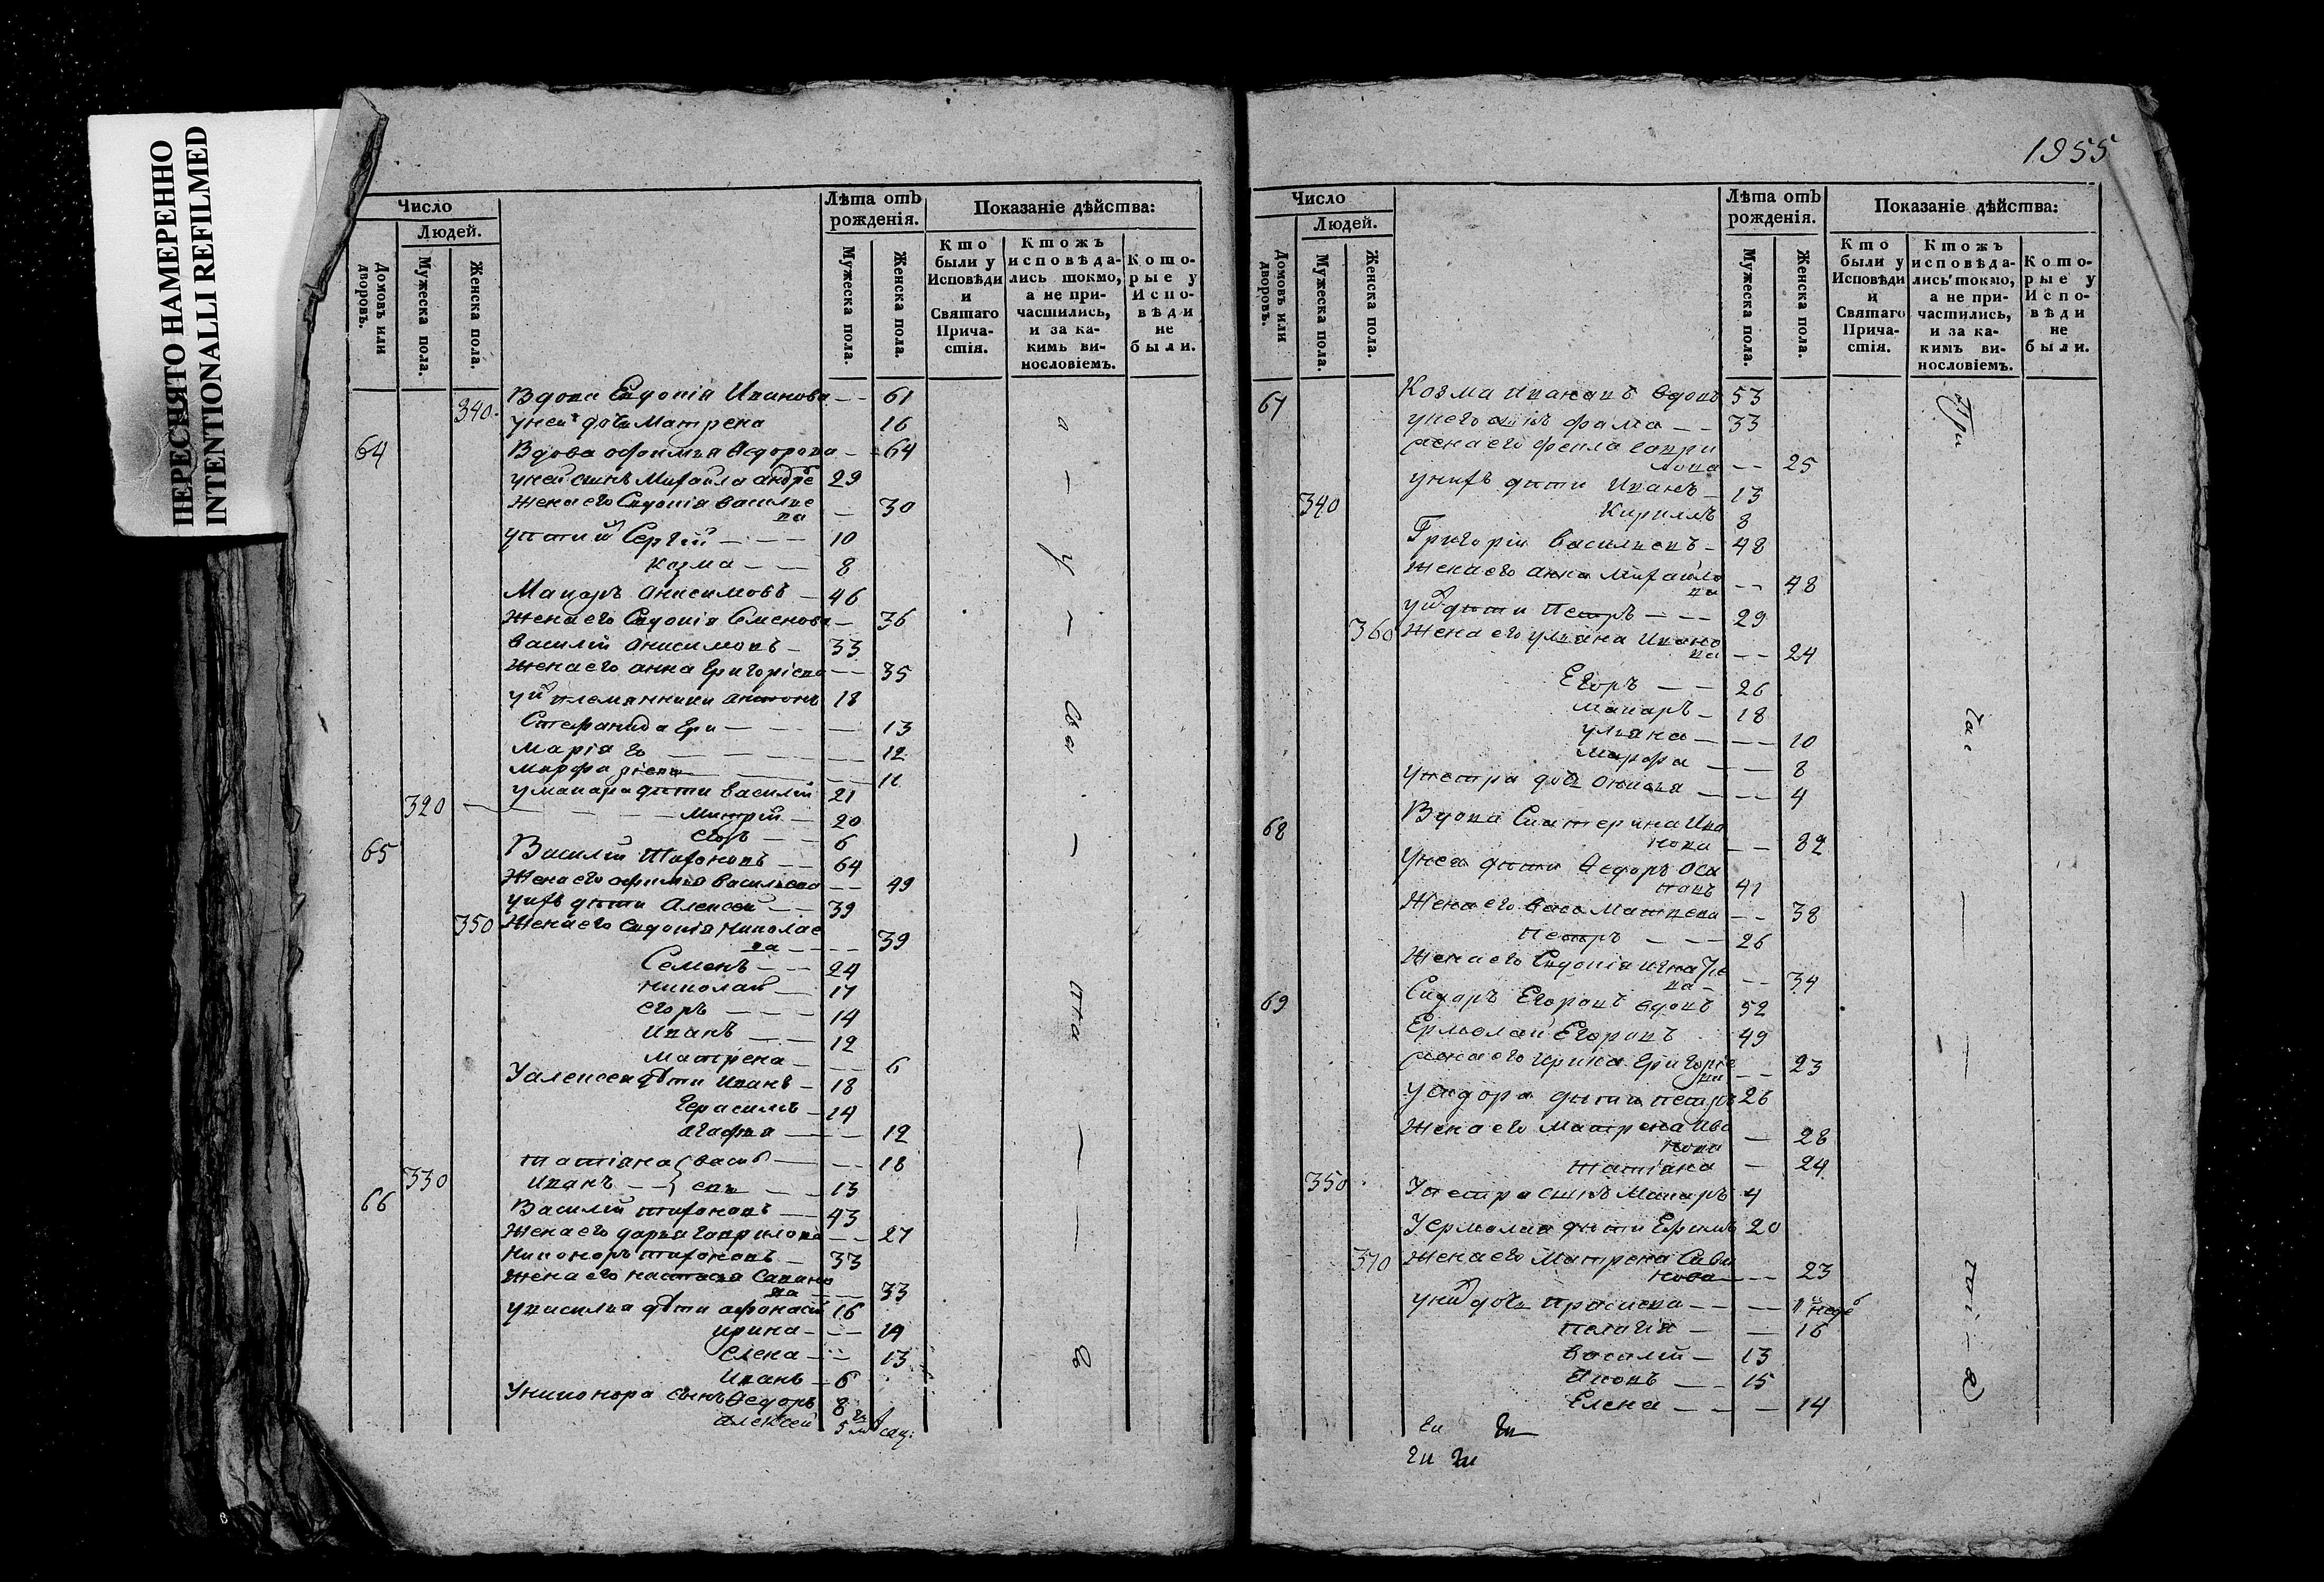 ПЕРЕСНЯТО НАМЕРЕННО
INTENTIONALLI REFILMED
Число
Людей.
Домовъ или дворовъ.
Мужеска пола.
Женска пола.
Лѣта отъ рожденія.
Мужеска пола.
Женска пола.
Показаніе дѣйства:
Кто были у Исповѣди и Святаго Причастія.
Ктожъ исповѣдались токмо, а не причастились, и за какимъ винословіемъ.
Которые у Исповѣди не были.
340 Вдова Евдокія Иванова — 61
у ней дочь Матрена 16
64 Вдова Афимья Федорова — 64
у ней сынъ Михайла Андре 29
Жена его Евдокія Василье
ва — 30
Сергей — 10
Козма — 8
Макаръ Анисимовъ — 46
Жена его Евдокія Семенова — 36
Василій Анисимовъ — 33
Жена его Анна Григоріева — 35
племянники Антонъ 18
Степанида Гри — 13
Марія го — 12
Марфа ріевы — 11
у Макара дѣти Василій 21
320 — Митрій — 20
Егоръ — 6
65 Василій Тихоновъ — 64
Жена его Афимья Васильева — 49
у ихъ дѣти Алексей — 39
350 Жена его Евдокія Николае
ва — 39
Семенъ — 24
Николай — 17
Егоръ — 14
Иванъ — 12
Матрена — 6
У Алексея дѣти Иванъ — 18
Герасимъ — 14
Агафья — 12
Татіана — 18
330 Иванъ — 13
66 Василій Тихоновъ — 43
Жена его Дарья Гаврилова — 27
Никоноръ Тихоновъ — 33
Жена его Настасья Савино
ва — 33
у Василья дѣти Афонасій 16
Ирина — 14
Елена — 13
Иванъ — 6
У Никонора сынъ Федоръ 8
Алексей 5
1955
Число
Людей.
Домовъ или дворовъ.
Мужеска пола.
Женска пола.
Лѣта отъ рожденія.
Мужеска пола.
Женска пола.
Показаніе дѣйства:
Кто были у Исповѣди и Святаго Причастія.
Ктожъ исповѣдались токмо, а не причастились, и за какимъ винословіемъ.
Которые у Исповѣди не были.
67 Козма Ивановъ вдовъ 53
у него Фома — 33
жена его Гаври
лова — 25
у нихъ дѣти Иванъ — 13
340 Кирилъ 8
Григорій Васильевъ — 48
Жена его Анна Михайло
ва — 48
дѣти Петръ — 29
360 Жена его Ульяна Ивано
ва — 24
Егоръ — 26
Макаръ — 18
Ульяна — 10
Марфа — 8
у Петра дочь — 4
68 Вдова Екатерина Ива
нова — 82
у нея дѣти Федоръ Оси
повъ 41
Жена его Матвева — 38
Петръ — 26
Жена его Евдокія Игнатье
ва — 34
69 Сидоръ Егоровъ вдовъ 52
Ермолай Егоровъ 49
жена его Ирина Григоріе
ва — 23
у Сидора дѣти Петръ 26
Жена его Матрена Ива
нова — 28
Татіана — 24
350 У Петра сынъ Макаръ 4
У Ермолая дѣти Ефимъ 20
370 Жена его Матрена Сави
нова — 23
дочь — 11 неде
Пелагія — 16
Василій — 13
Яковъ — 15
Елена — 14